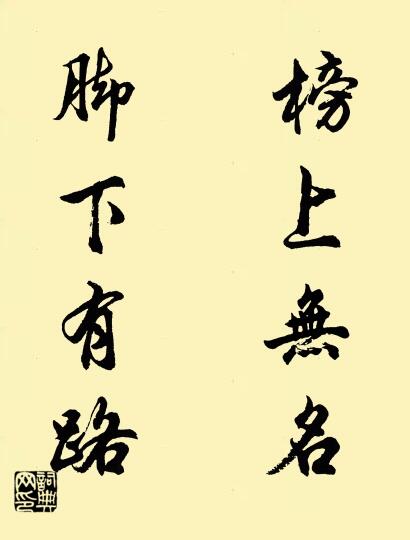 榜上無名
脚下有路
詞典网印